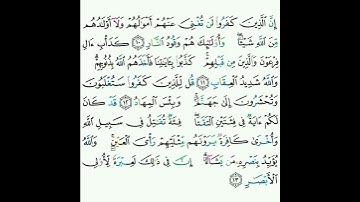 إِنَّ ٱلَّذِينَ كَفَرُوا۟ لَن تُغْنِىَ عَنْهُمْ أَمْوَٰلُهُمْ وَلَآ أَوْلَٰدُهُم
مِّنَ ٱللَّهِ شَيْـًٔا ۖ وَأُو۟لَٰٓئِكَ هُمْ وَقُودُ ٱلنَّارِ ١٠ كَدَأْبِ ءَالِ
فِرْعَوْنَ وَٱلَّذِينَ مِن قَبْلِهِمْ ۚ كَذَّبُوا۟ بِـَٔايَٰتِنَا فَأَخَذَهُمُ ٱللَّهُ بِذُنُوبِهِمْ ۗ
وَٱللَّهُ شَدِيدُ ٱلْعِقَابِ ١١ قُل لِّلَّذِينَ كَفَرُوا۟ سَتُغْلَبُونَ
وَتُحْشَرُونَ إِلَىٰ جَهَنَّمَ ۚ وَبِئْسَ ٱلْمِهَادُ ١٢ قَدْ كَانَ
لَكُمْ ءَايَةٌ فِى فِئَتَيْنِ ٱلْتَقَتَا ۖ فِئَةٌ تُقَٰتِلُ فِى سَبِيلِ ٱللَّهِ
وَأُخْرَىٰ كَافِرَةٌ يَرَوْنَهُم مِّثْلَيْهِمْ رَأْىَ ٱلْعَيْنِ ۚ وَٱللَّهُ
يُؤَيِّدُ بِنَصْرِهِۦ مَن يَشَآءُ ۗ إِنَّ فِى ذَٰلِكَ لَعِبْرَةً لِّأُو۟لِى
ٱلْأَبْصَٰرِ ١٣